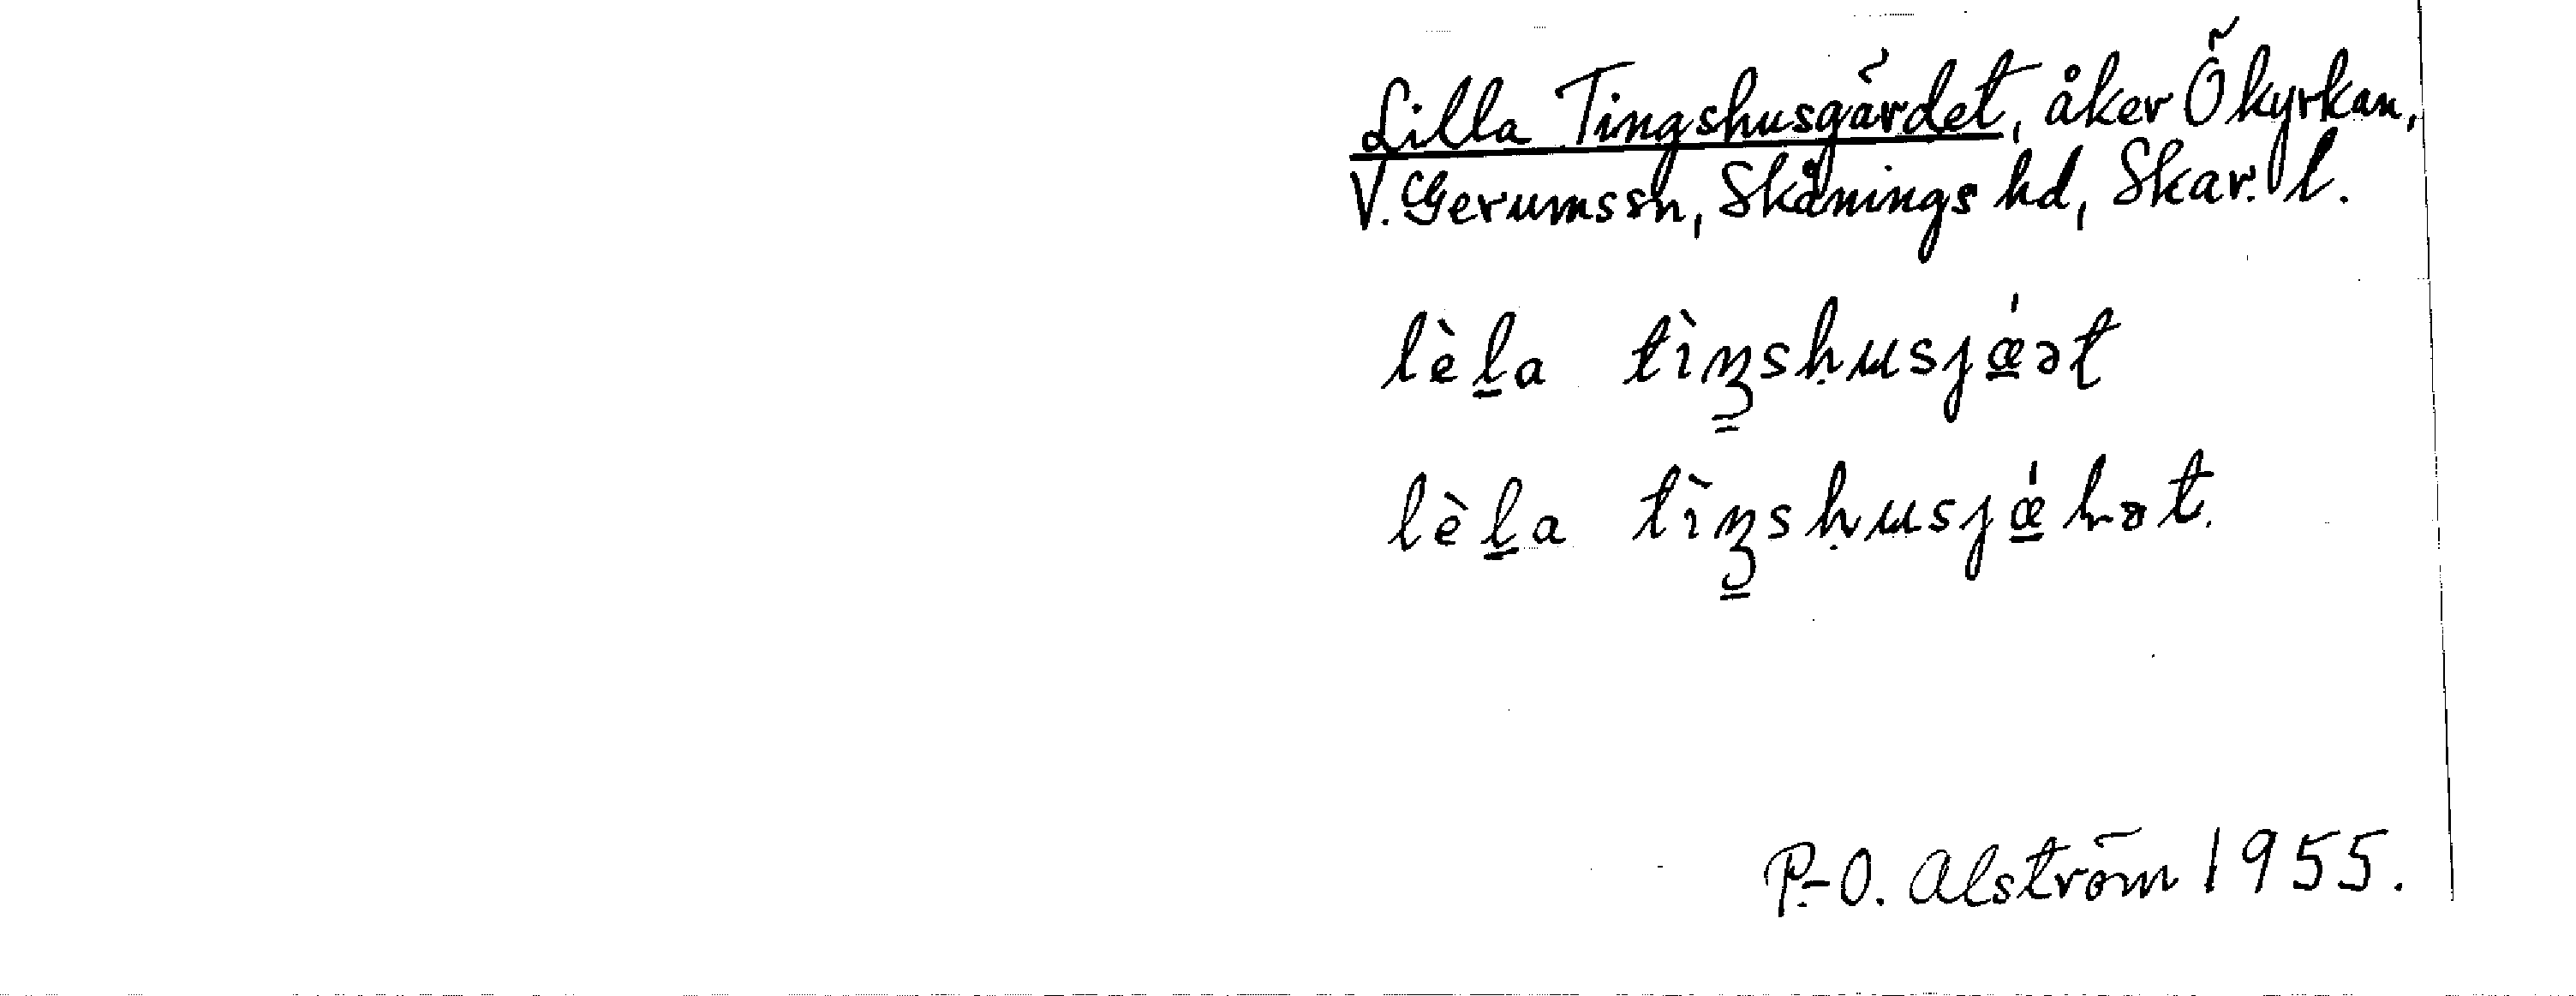 Lilla Tingshusgärdet, åker Ö kyrkan,
V. Gerumssn, Skånings hd, Skar. l.
lèl̠a tìŋshu̇sjǽət
lèl̠a tìŋshu̇sjǽhət.
P.-O. Alström 1955.